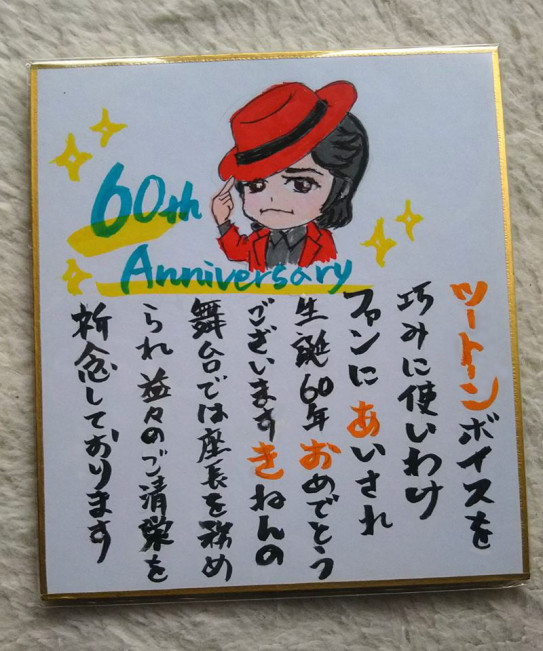 60th
Anniversary
ツートンボイスを
巧みに使いわけ
ファンにあいされ
生誕60年おめでとう
ございますきねんの
舞台では座長を務め
られ益々のご清栄を
祈念しております